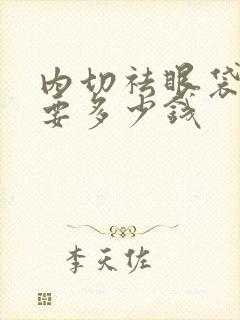 内切祛眼袋
要多少钱
李天佐